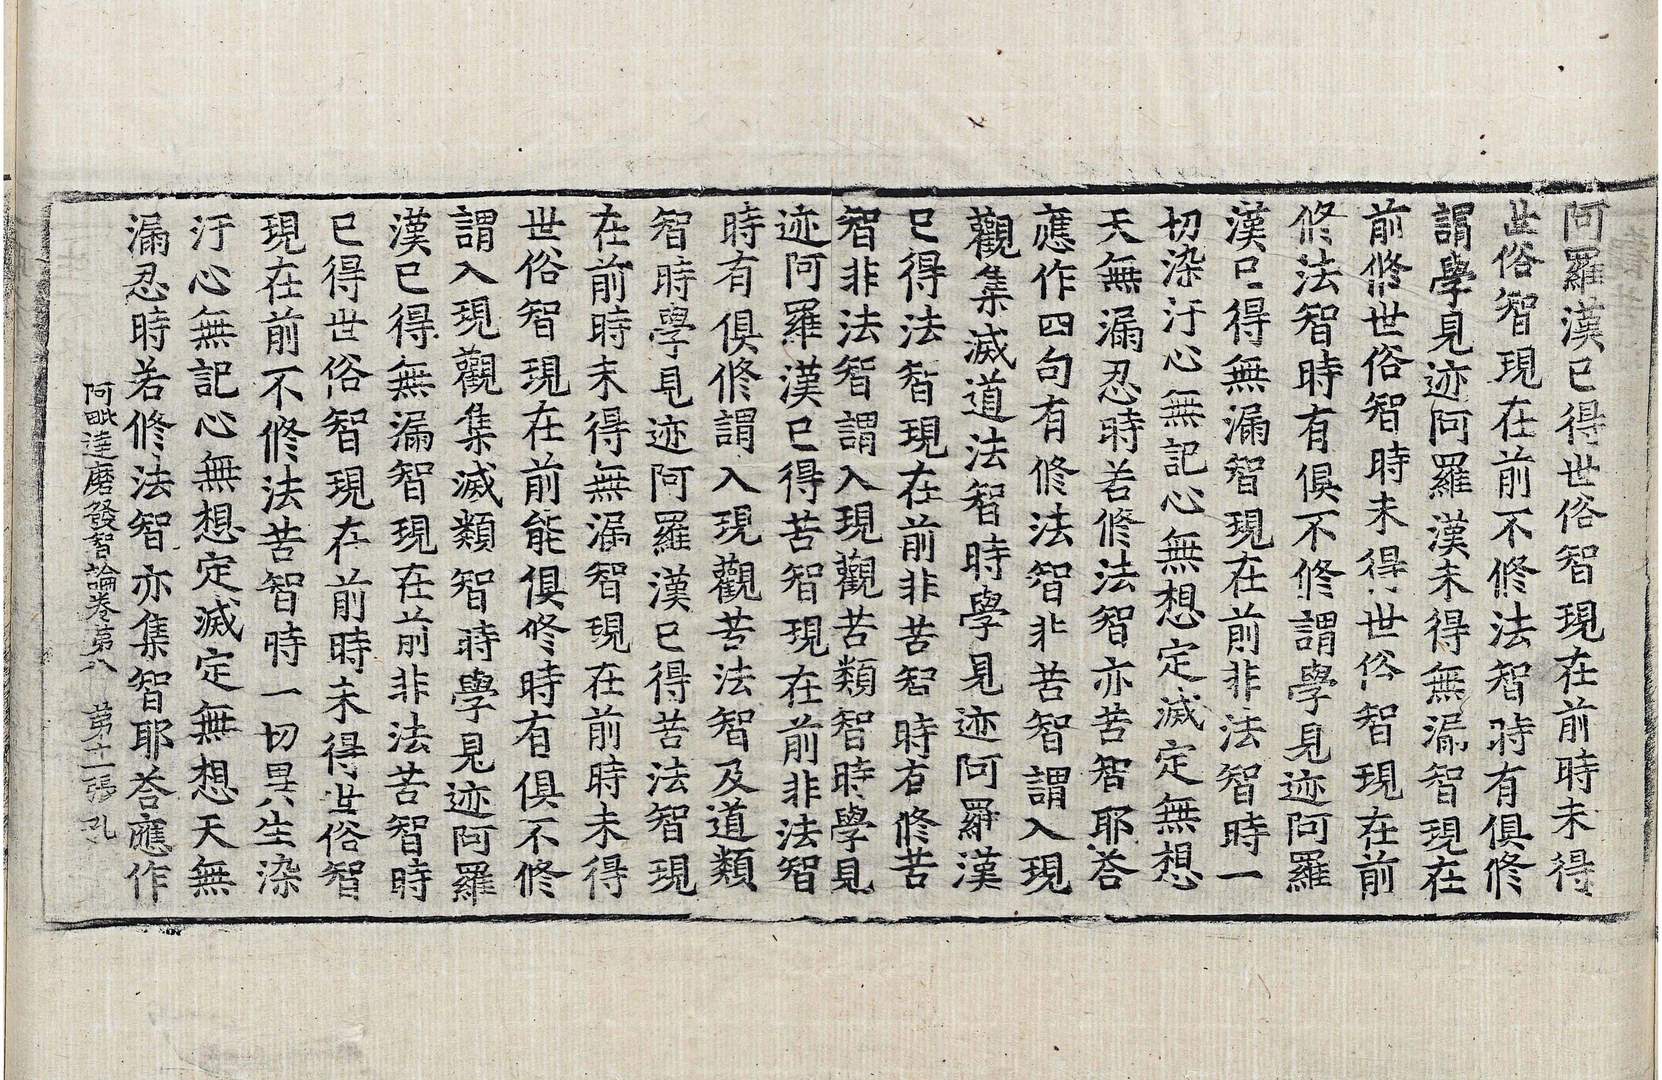 阿羅漢已得世俗智現在前時未得
世俗智現在前不修法智時有俱修
謂學見迹阿羅漢未得無漏智現在
前修世俗智時未得世俗智現在前
修法智時有俱不修謂學見迹阿羅
漢已得無漏智現在前非法智時一
切染汙心無記心無想定滅定無想
天無漏忍時若修法智亦苦智耶荅
應作四句有修法智非苦智謂入現
觀集滅道法智時學見迹阿羅漢
已得法智現在前非苦智時有修苦
智非法智謂入現觀苦類智時學見
迹阿羅漢已得苦智現在前非法智
時有俱修謂入現觀苦法智及道類
智時學見迹阿羅漢已得苦法智現
在前時未得無漏智現在前時未得
世俗智現在前能俱修時有俱不修
謂入現觀集滅類智時學見迹阿羅
漢已得無漏智現在前非法苦智時
已得世俗智現在前時未得世俗智
現在前不修法苦智時一切異生染
汙心無記心無想定滅定無想天無
漏忍時若修法智亦集智耶荅應作
阿毗達磨發智論卷第八 第十一張 孔